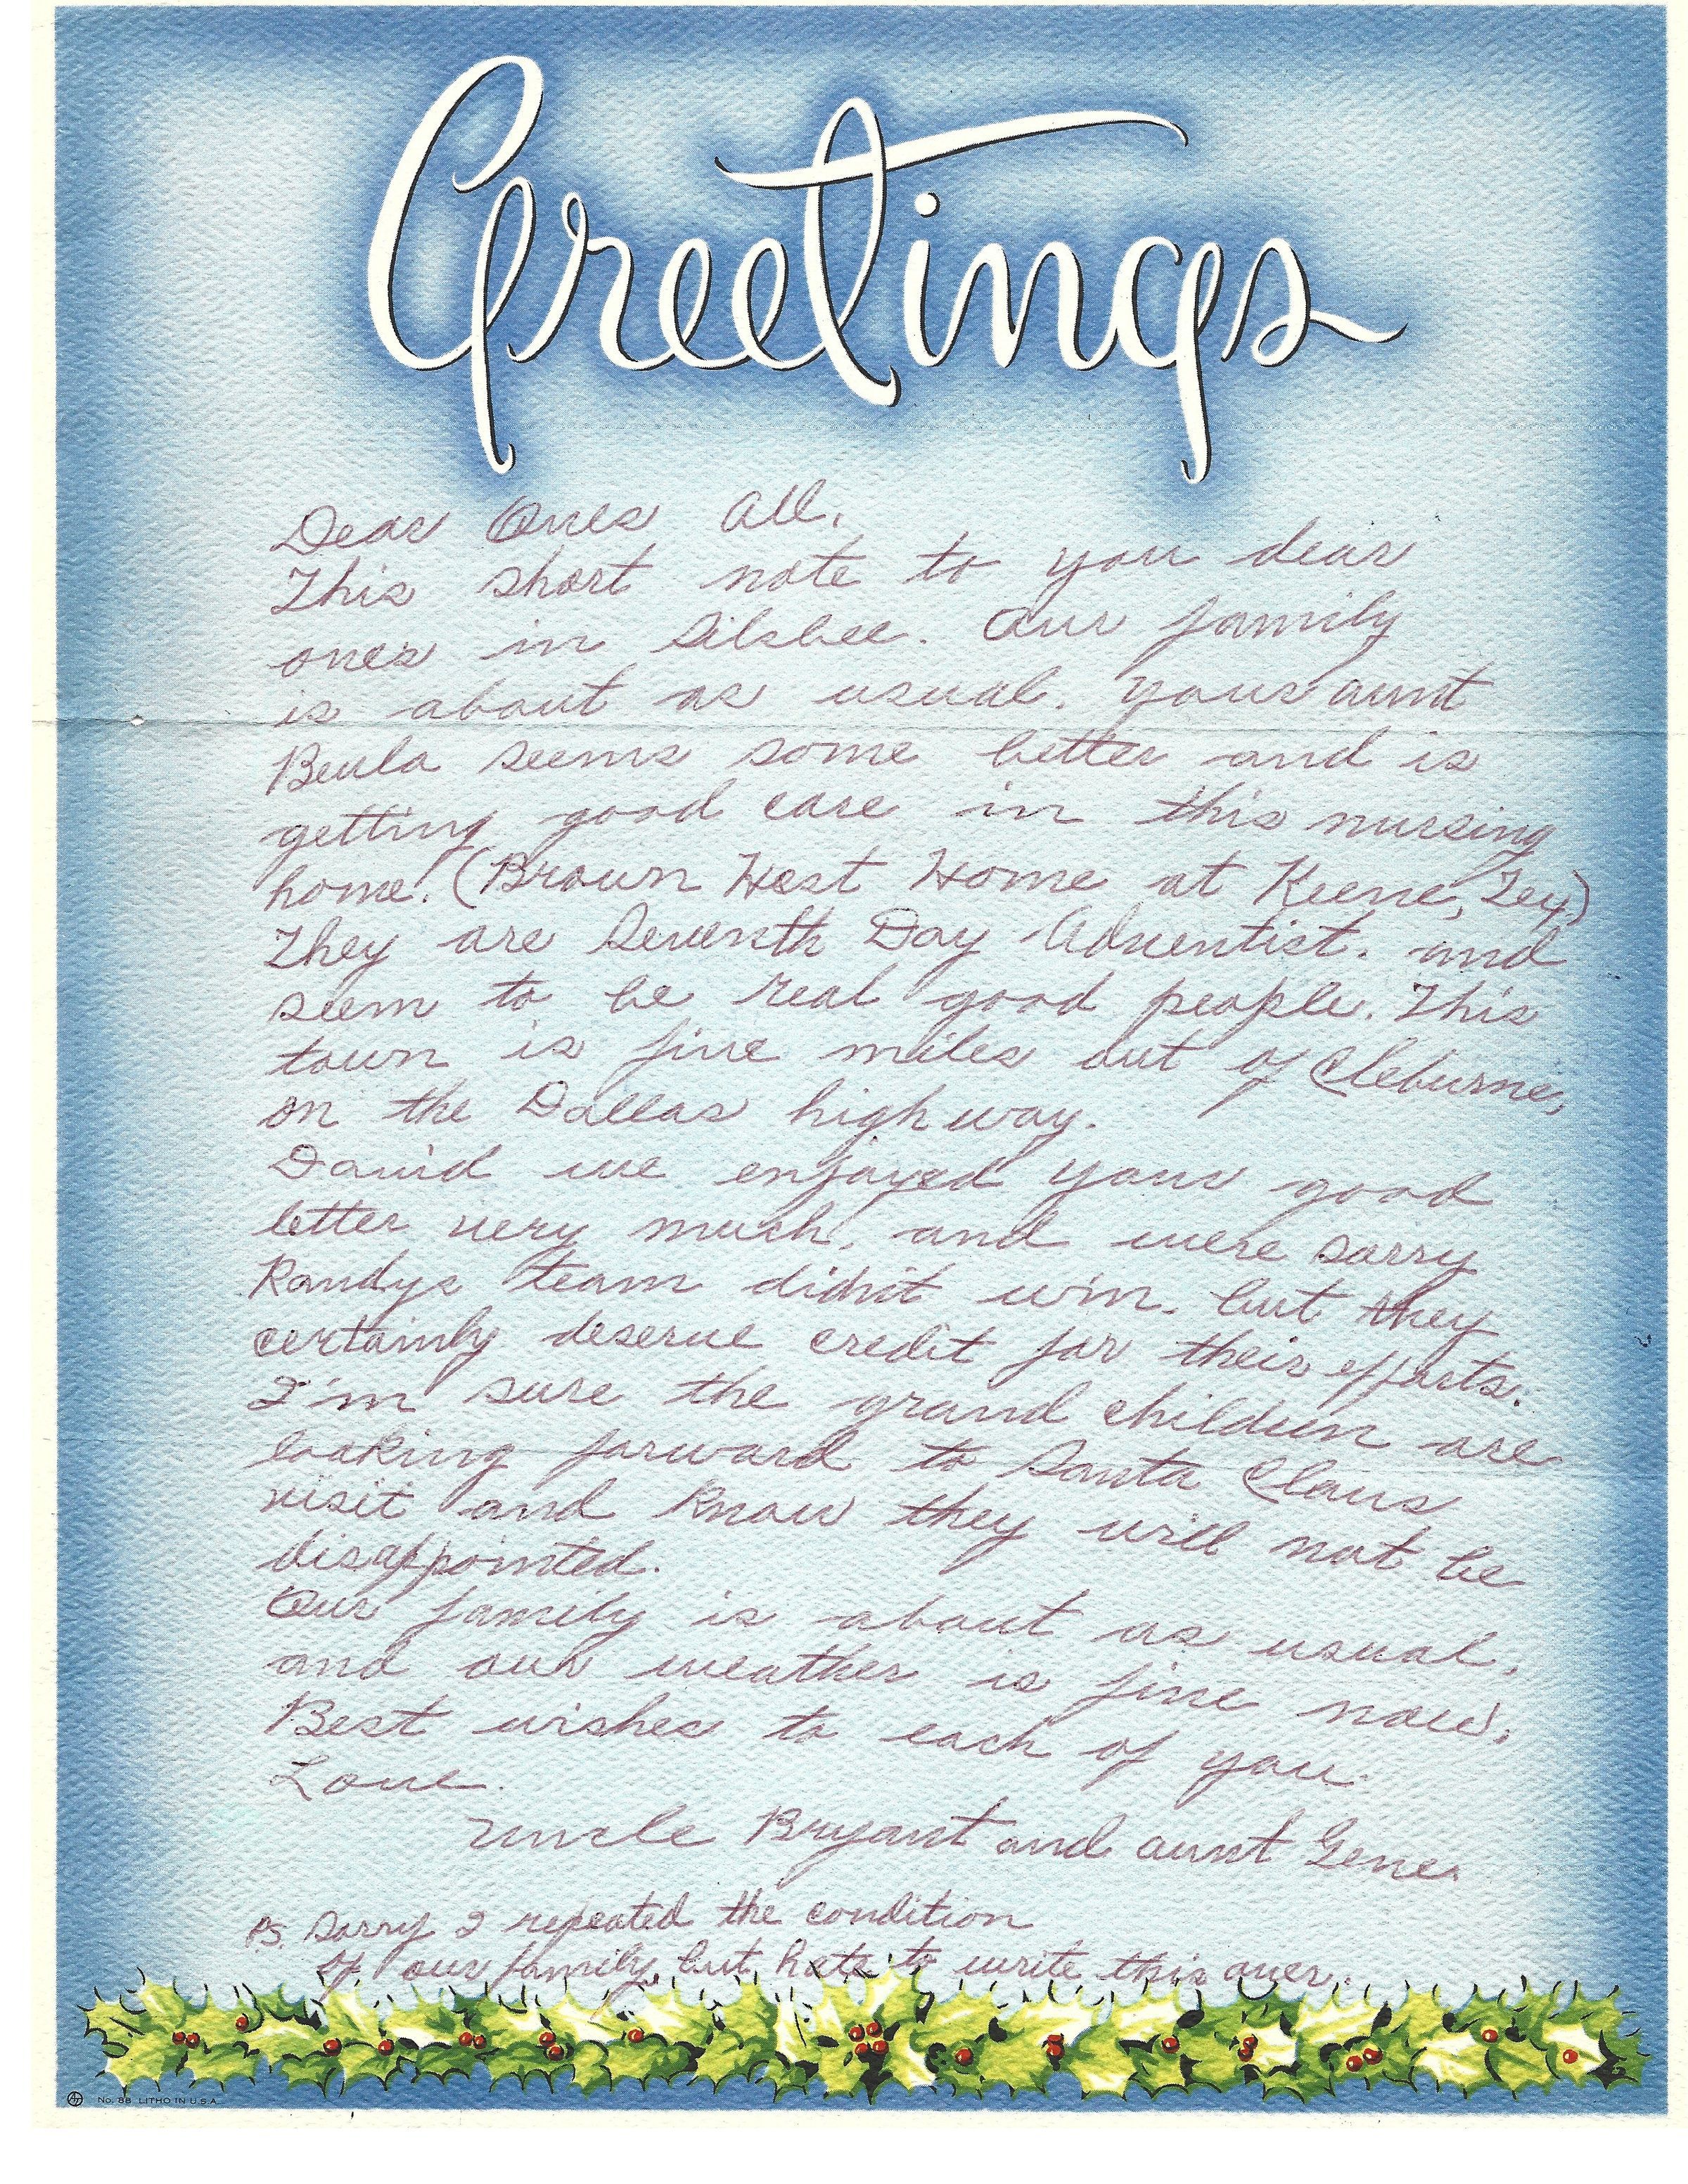 Greetings
Dear Ones All.
This short note to you dear
ones in Silsbee. Our family
is about as usual. your aunt
Beula seems some better and is
getting good care in this nursing
home. (Brown West Home at Keene, Tex)
They are Seventh Day Adventist. and
seem to be real good people. This
town is five miles out of Cleburne,
on the Dallas high way.
David we enjoyed your good
letter very much, and were sorry
Randys team didn't win. but they
certainly deserve credit for their efforts.
I'm sure the grand children are
looking forward to Santa Claus
visit and know they will not be
disappointed.
Our family is about as usual,
and our weather is fine now.
Best wishes to each of you.
Love.
Uncle Bryant and aunt Gene.
PS. Sorry I repeated the condition
of our family, but hate to write this over.
No. 88 LITHO IN U.S.A.